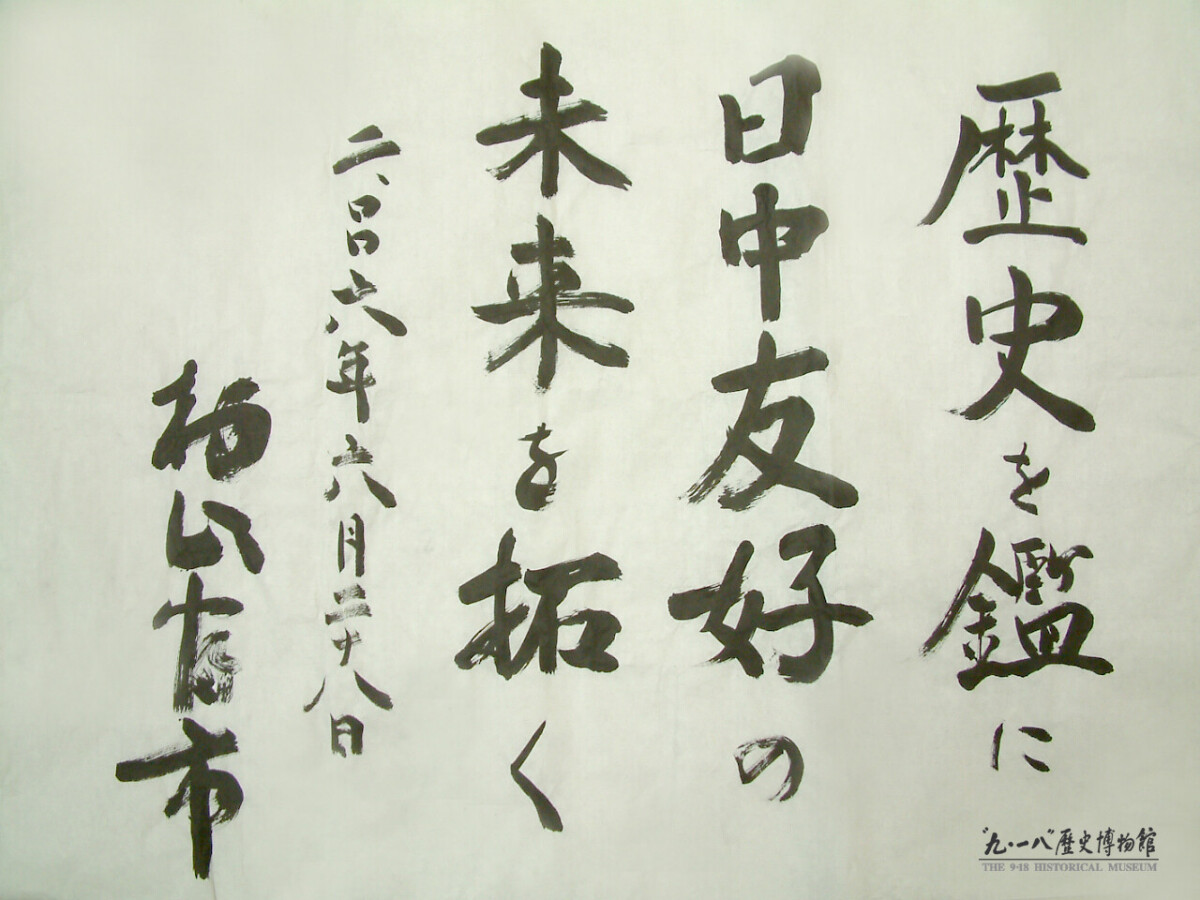 歴史を鑑に
日中友好の
未来を拓く
二、〇〇六年六月二十八日
村山富市
“九·一八”歷史博物館
THE 9·18 HISTORICAL MUSEUM